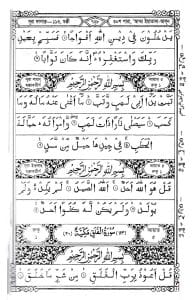 يَدْخُلُوْنَ فِيْ دِيْنِ اللّٰهِ اَفْوَاجًا ۝ فَسَبِّحْ بِحَمْدِ
رَبِّكَ وَاسْتَغْفِرْهُ اِنَّهٗ كَانَ تَوَّابًا ۝
بِسْمِ اللّٰهِ الرَّحْمٰنِ الرَّحِيْمِ
تَبَّتْ يَدَآ اَبِيْ لَهَبٍ وَّتَبَّ ۝ مَآ اَغْنٰى عَنْهُ مَالُهٗ وَمَا
كَسَبَ ۝ سَيَصْلٰى نَارًا ذَاتَ لَهَبٍ ۝ وَّامْرَاَتُهٗ حَمَّالَةَ
الْحَطَبِ ۝ فِيْ جِيْدِهَا حَبْلٌ مِّنْ مَّسَدٍ ۝
بِسْمِ اللّٰهِ الرَّحْمٰنِ الرَّحِيْمِ
قُلْ هُوَ اللّٰهُ اَحَدٌ ۝ اَللّٰهُ الصَّمَدُ ۝ لَمْ يَلِدْ وَلَمْ
يُوْلَدْ ۝ وَلَمْ يَكُنْ لَّهٗ كُفُوًا اَحَدٌ ۝
سُوْرَةُ الْفَلَقِ مَكِّيَّةٌ (٢٠)
بِسْمِ اللّٰهِ الرَّحْمٰنِ الرَّحِيْمِ
قُلْ اَعُوْذُ بِرَبِّ الْفَلَقِ ۝ مِنْ شَرِّ مَا خَلَقَ ۝